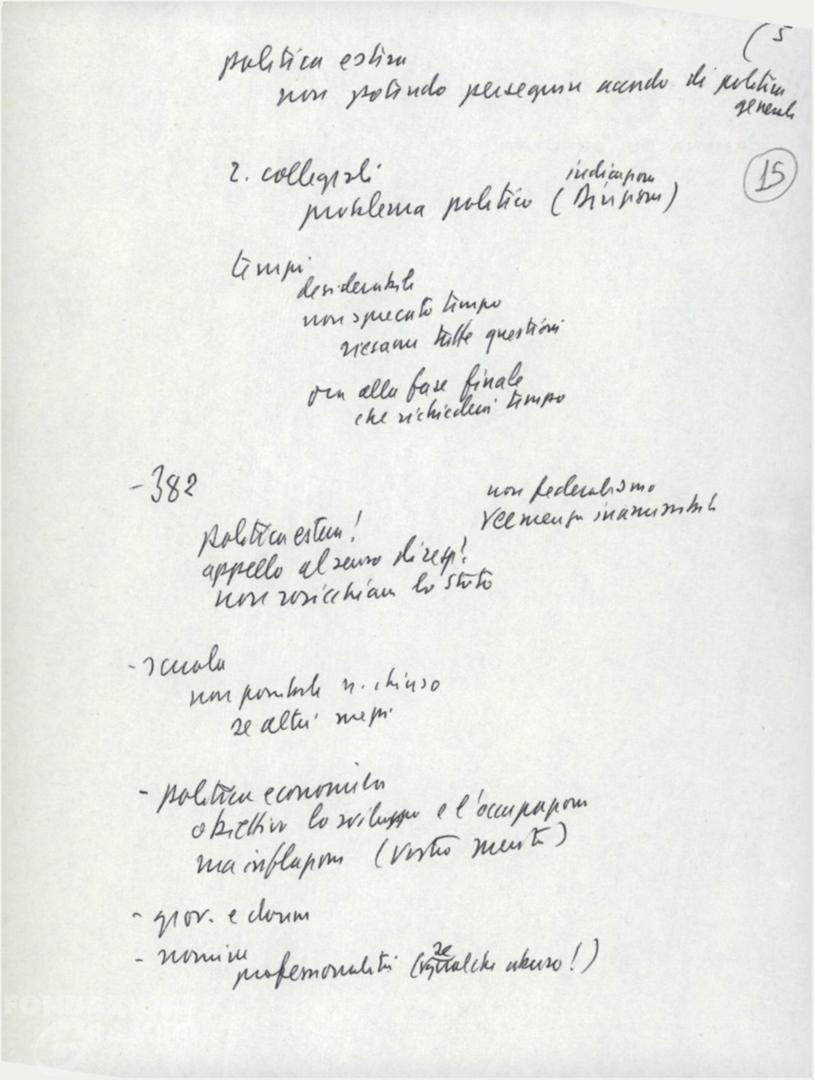 (5
politica estera
non potendo perseguire accordo di politica
generale
15
2. collegiali
indicazioni
problema politico (Divisioni)
tempi
desiderabili
non sprecato tempo
riesame tutte questioni
ora alla fase finale
che richiederà tempo
-382
non federalismo
veemenza inammissibile
politica estera!
appello al senso di resp!
non rosicchiare lo stato
- scuola
non possibile n. chiuso
se altri mezzi
- politica economica
obiettivo lo sviluppo e l'occupazione
ma inflazione (vostro merito)
- giov. e donne
- nomine
se
professionalità (qualche abuso!)